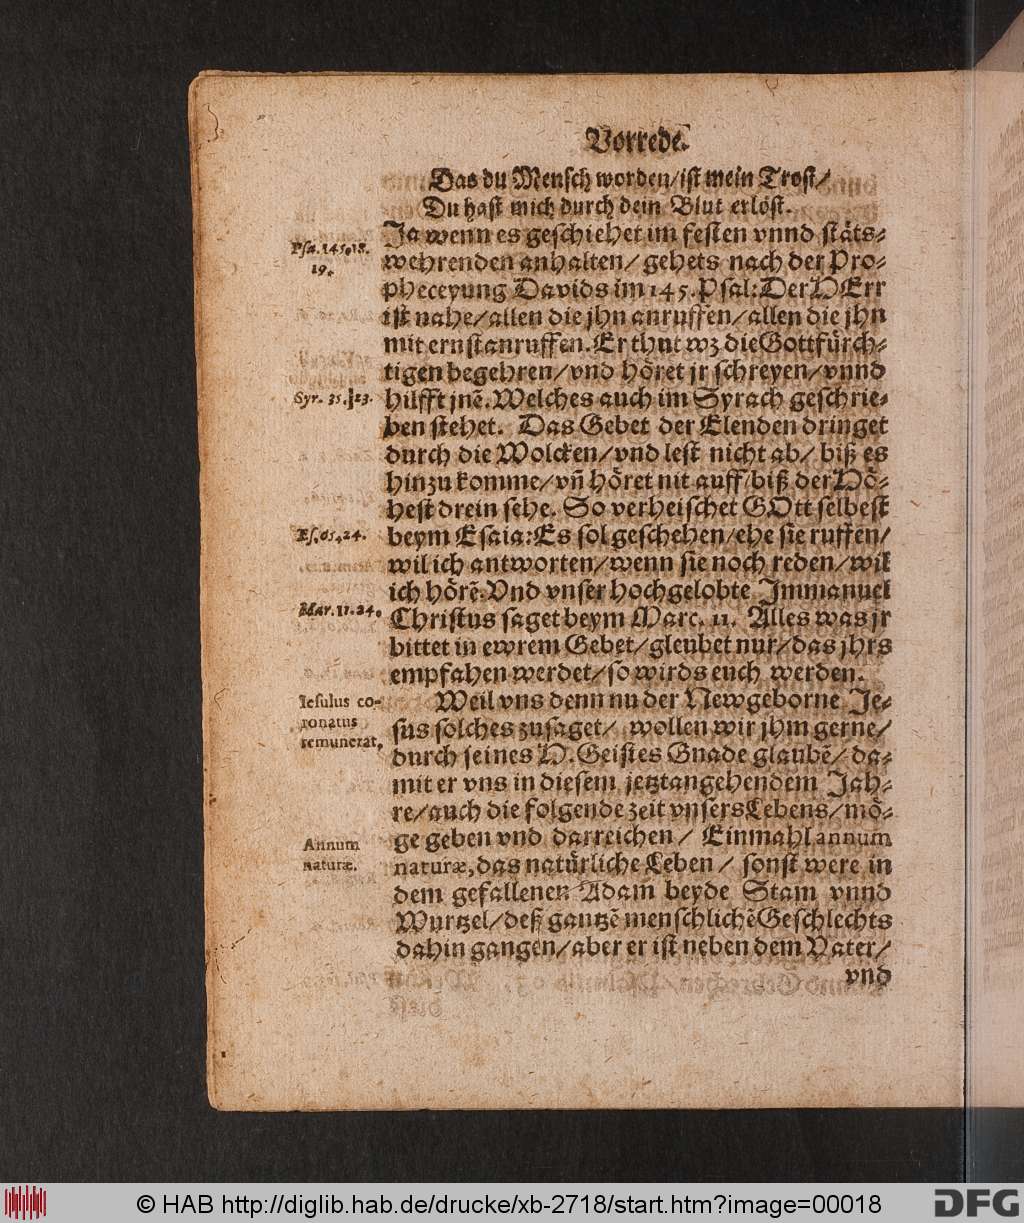 Vorrede.
Das du Mensch worden/ist mein Trost/
Du hast mich durch dein Blut erlöst.
Ja wenn es geschiehet im festen vnnd stäts-
Psa. 145. 18.
19.
wehrenden anhalten/ gehets nach der Pro-
pheceyung Davids im 145. Psal: Der HErr
ist nahe/allen die jhn anruffen/allen die jhn
mit ernst anruffen. Er thut wz die Gottfürch-
tigen begehren/vnd höret jr schreyen/vnnd
Syr. 35. 23.
hilfft jnẽ. Welches auch im Syrach geschrie-
ben stehet. Das Gebet der Elenden dringet
durch die Wolcken/vnd lest nicht ab/ biß es
hinzu komme/vñ höret nit auff/biß der Hö-
hest drein sehe. So verheischet GOtt selbest
Es. 65. 24.
beym Esaia: Es sol geschehen/ehe sie ruffen/
wil ich antworten/wenn sie noch reden/wil
ich hörẽ. Vnd vnser hochgelobte Immanuel
Mar. 11. 24.
Christus saget beym Marc. 11. Alles was jr
bittet in ewrem Gebet/gleubet nur/das jhrs
empfahen werdet/so wirds euch werden.
Iesulus co-
ronatus
remunerat.
Weil vns denn nu der Newgeborne Je-
sus solches zusaget/ wollen wir jhm gerne/
durch seines H. Geistes Gnade glaubẽ/ da-
mit er vns in diesem jetztangehendem Jah-
re/auch die folgende zeit vnsers Lebens/mö-
Annum
naturæ.
ge geben vnd darreichen/ Einmahl annum
naturæ, das natürliche Leben/ sonst were in
dem gefallenen Adam beyde Stam vnnd
Wurtzel/deß gantzẽ menschlichẽ Geschlechts
dahin gangen/aber er ist neben dem Vater/
vnd
© HAB http://diglib.hab.de/drucke/xb-2718/start.htm?image=00018
DFG